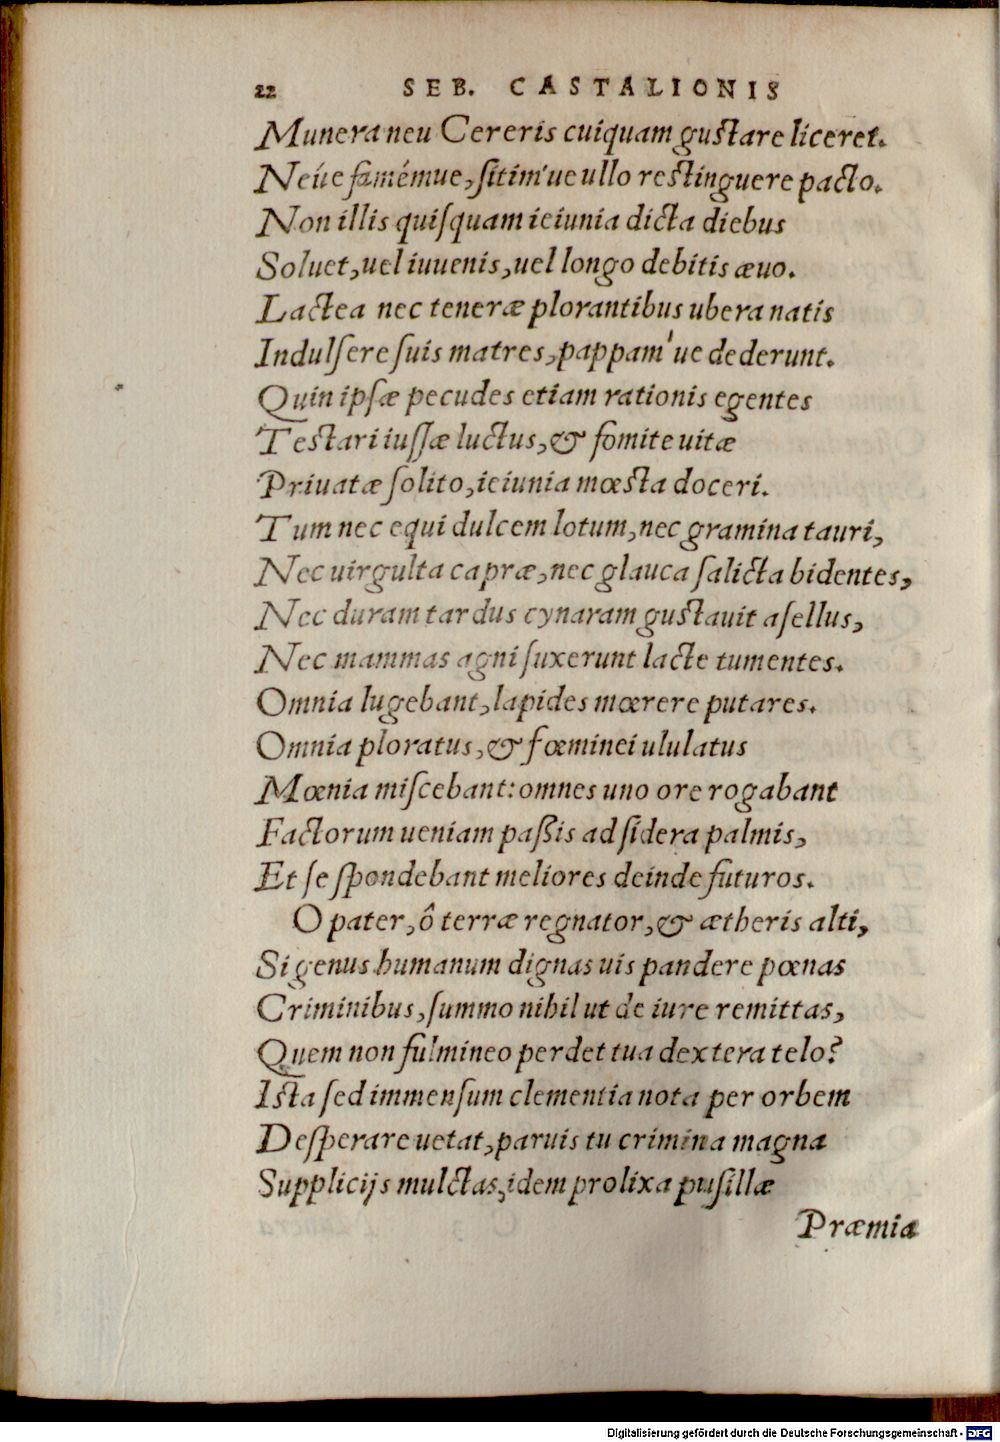 22 SEB. CASTALIONIS
Munera neu Cereris cuiquam gustare liceret.
Neúe famémue, sitim'ue ullo restinguere pacto.
Non illis quisquam ieiunia dicta diebus
Soluet, uel iuuenis, uel longo debitis æuo.
Lactea nec teneræ plorantibus ubera natis
Indulsere suis matres, pappam'ue dederunt.
Quin ipsæ pecudes etiam rationis egentes
Testari iussæ luctus, & fomite uitæ
Priuatæ solito, ieiunia mœsta doceri.
Tum nec equi dulcem lotum, nec gramina tauri,
Nec uirgulta capræ, nec glauca salicta bidentes,
Nec duram tardus cynaram gustauit asellus,
Nec mammas agni suxerunt lacte tumentes.
Omnia lugebant, lapides mœrere putares.
Omnia ploratus, & fœminei ululatus
Mœnia miscebant: omnes uno ore rogabant
Factorum ueniam paßis ad sidera palmis,
Et se spondebant meliores deinde futuros.
O pater, ô terræ regnator, & ætheris alti,
Si genus humanum dignas uis pandere pœnas
Criminibus, summo nihil ut de iure remittas,
Quem non fulmineo perdet tua dextera telo?
Ista sed immensum clementia nota per orbem
Desperare uetat, paruis tu crimina magna
Supplicijs mulctas, idem prolixa pusillæ
Præmia
Digitalisierung gefördert durch die Deutsche Forschungsgemeinschaft - DFG